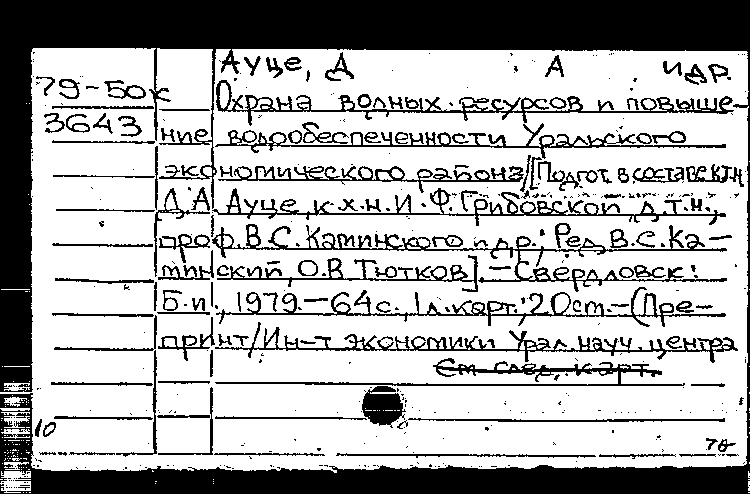 Ауце, Д А и др.
79-50к Охрана водных ресурсов и повыше-
3643 ние водообеспеченности Уральского
экономического района/[Подгот. в составе к.т.н.
Д.А. Ауце, к.х.н. И.Ф. Грибовской, д.т.н.,
проф. В.С. Каминского и др.; Ред. В.С. Ка-
минский, О.В. Тютков]. — Свердловск:
Б.и., 1979. — 64 с., 1 л. карт.; 20 см. — (Пре-
принт/Ин-т экономики Урал. науч. центра
См. след. карт.
10